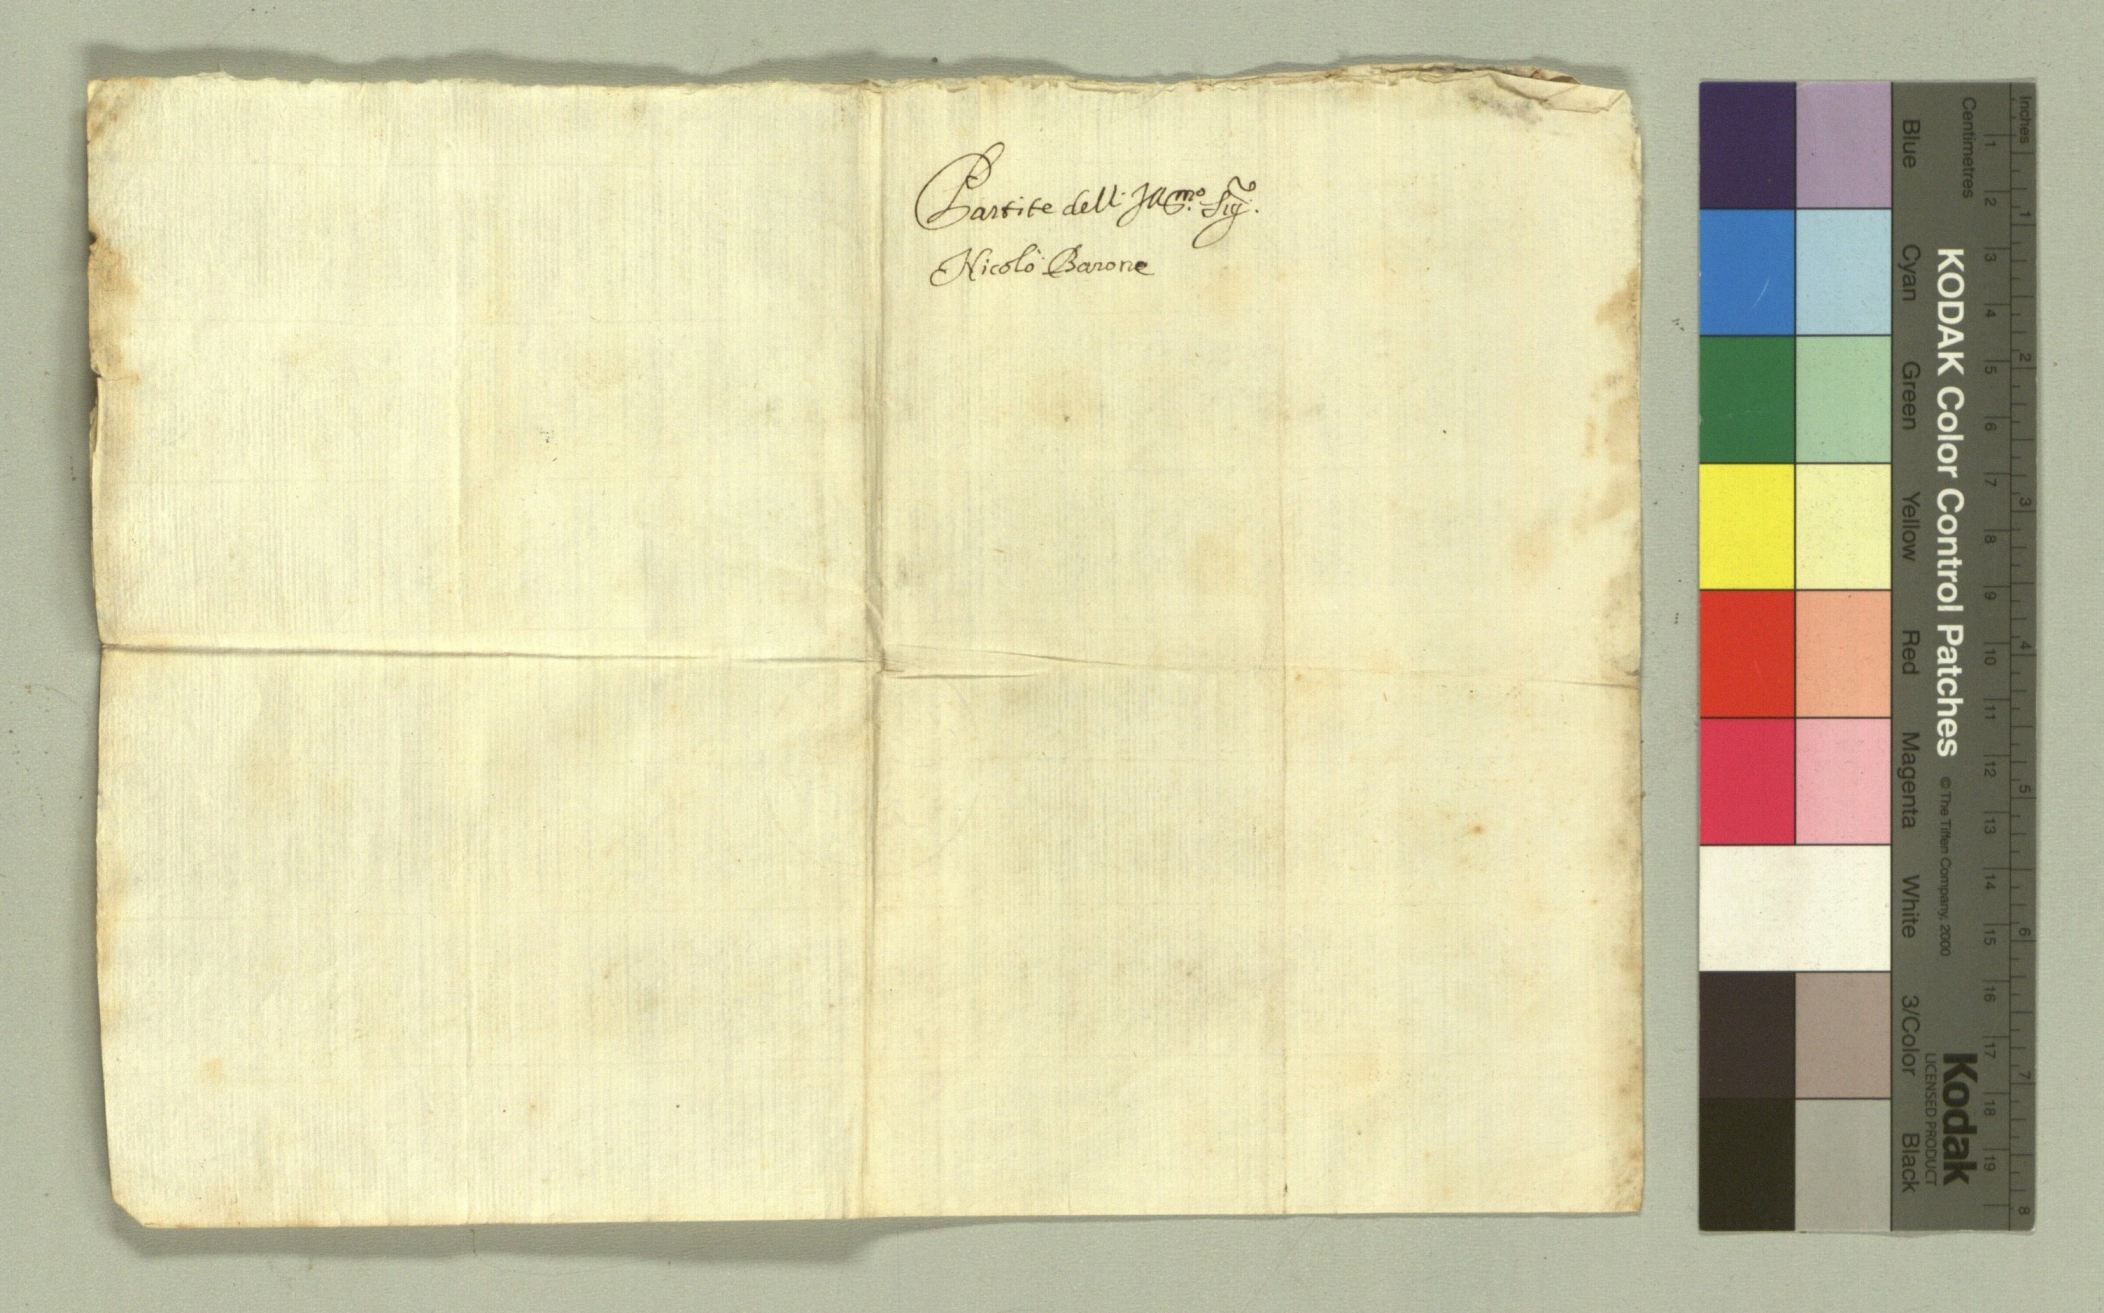 Partite dell' Ill.mo Sig.
Nicolò Barone
Inches
Centimetres
1 2 3 4 5 6 7 8
1 2 3 4 5 6 7 8 9 10 11 12 13 14 15 16 17 18 19
KODAK Color Control Patches © The Tiffen Company, 2000
Kodak
LICENSED PRODUCT
Blue Cyan Green Yellow Red Magenta White 3/Color Black